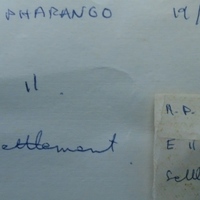 PHARANGO 19/
11.
ettlement.
A.P.
E 11
Settl